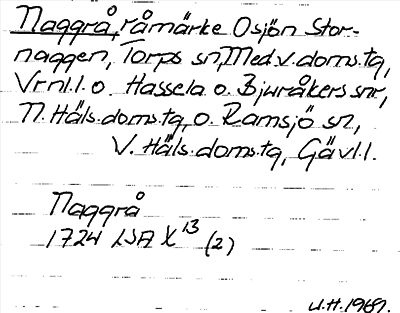 Naggrå, råmärke Osjön Stor-
naggen, Torps sn, Med.v.doms.tg,
Vrnl.l. o. Hassela o. Bjuråkers snr,
N. Häls.doms.tg, o. Ramsjö sn,
V. Häls.doms.tg, Gävl.l.
Naggrå
1724 LSA X 13 (2)
J.H. 1969.